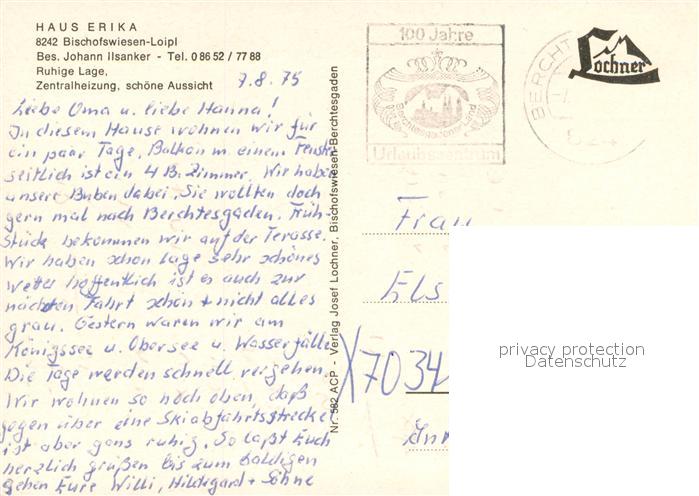 HAUS ERIKA
8242 Bischofswiesen-Loipl
Bes. Johann Ilsanker - Tel. 0 86 52 / 77 88
Ruhige Lage,
Zentralheizung, schöne Aussicht
7.8.75
Liebe Oma u. liebe Hanna!
In diesem Hause wohnen wir für
ein paar Tage, Balkon m. einem Fenst
seitlich ist ein 4 B. Zimmer. Wir habe
unsere Buben dabei, Sie wollten doch
gern mal nach Berchtesgaden. Früh-
stück bekommen wir auf der Terasse.
Wir haben schon lage sehr schönes
Wetter hoffentlich ist es auch zur
nächten Fahrt schön + nicht alles
grau. Gestern waren wir am
Königssee u. Obersee u. Wasserfälle
Die Tage werden schnell vergehen.
Wir wohnen so hoch oben, daß
gegen über eine Skiabfahrtsstrecke
ist aber ganz ruhig. So laßt Euch
herzlich grüßen bis zum baldigen
sehen Eure Willi, Hildigard + Söhne
Nr. 582 ACP - Verlag Josef Lochner, Bischofswiesen-Berchtesgaden
100 Jahre
Berchtesgadener Land
Urlaubszentrum
BERCHT
Lochner
Frau
Els
7034
privacy protection
Datenschutz